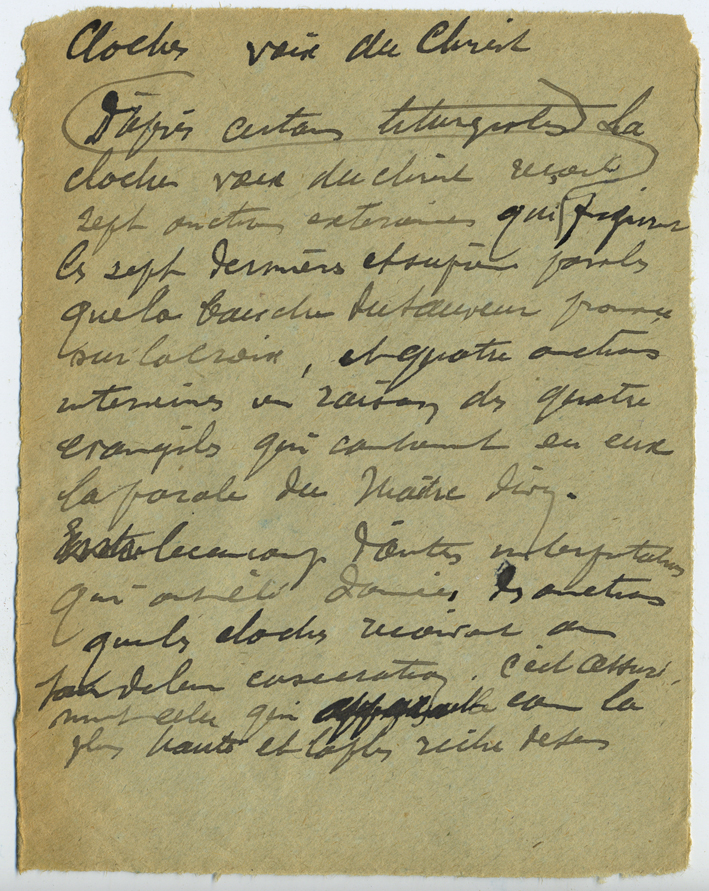 Cloches voix du Christ
D'après certains liturgistes La
cloches voix du christ reçoit
sept onctions exterieures qui figurent
les sept dernières et suprêmes paroles
que la bouche du Sauveur prononça
sur la croix, et quatre onctions
interieures en raison des quatre
evangiles qui contiennent en eux
la parole du Maître divin.
Entre beaucoup d'autres interpretations
qui ont été données des onctions
que les cloches reçoivent au
jour de leur consecration, c'est assuré-
ment celle qui comme la
plus haute et la plus riche de sens